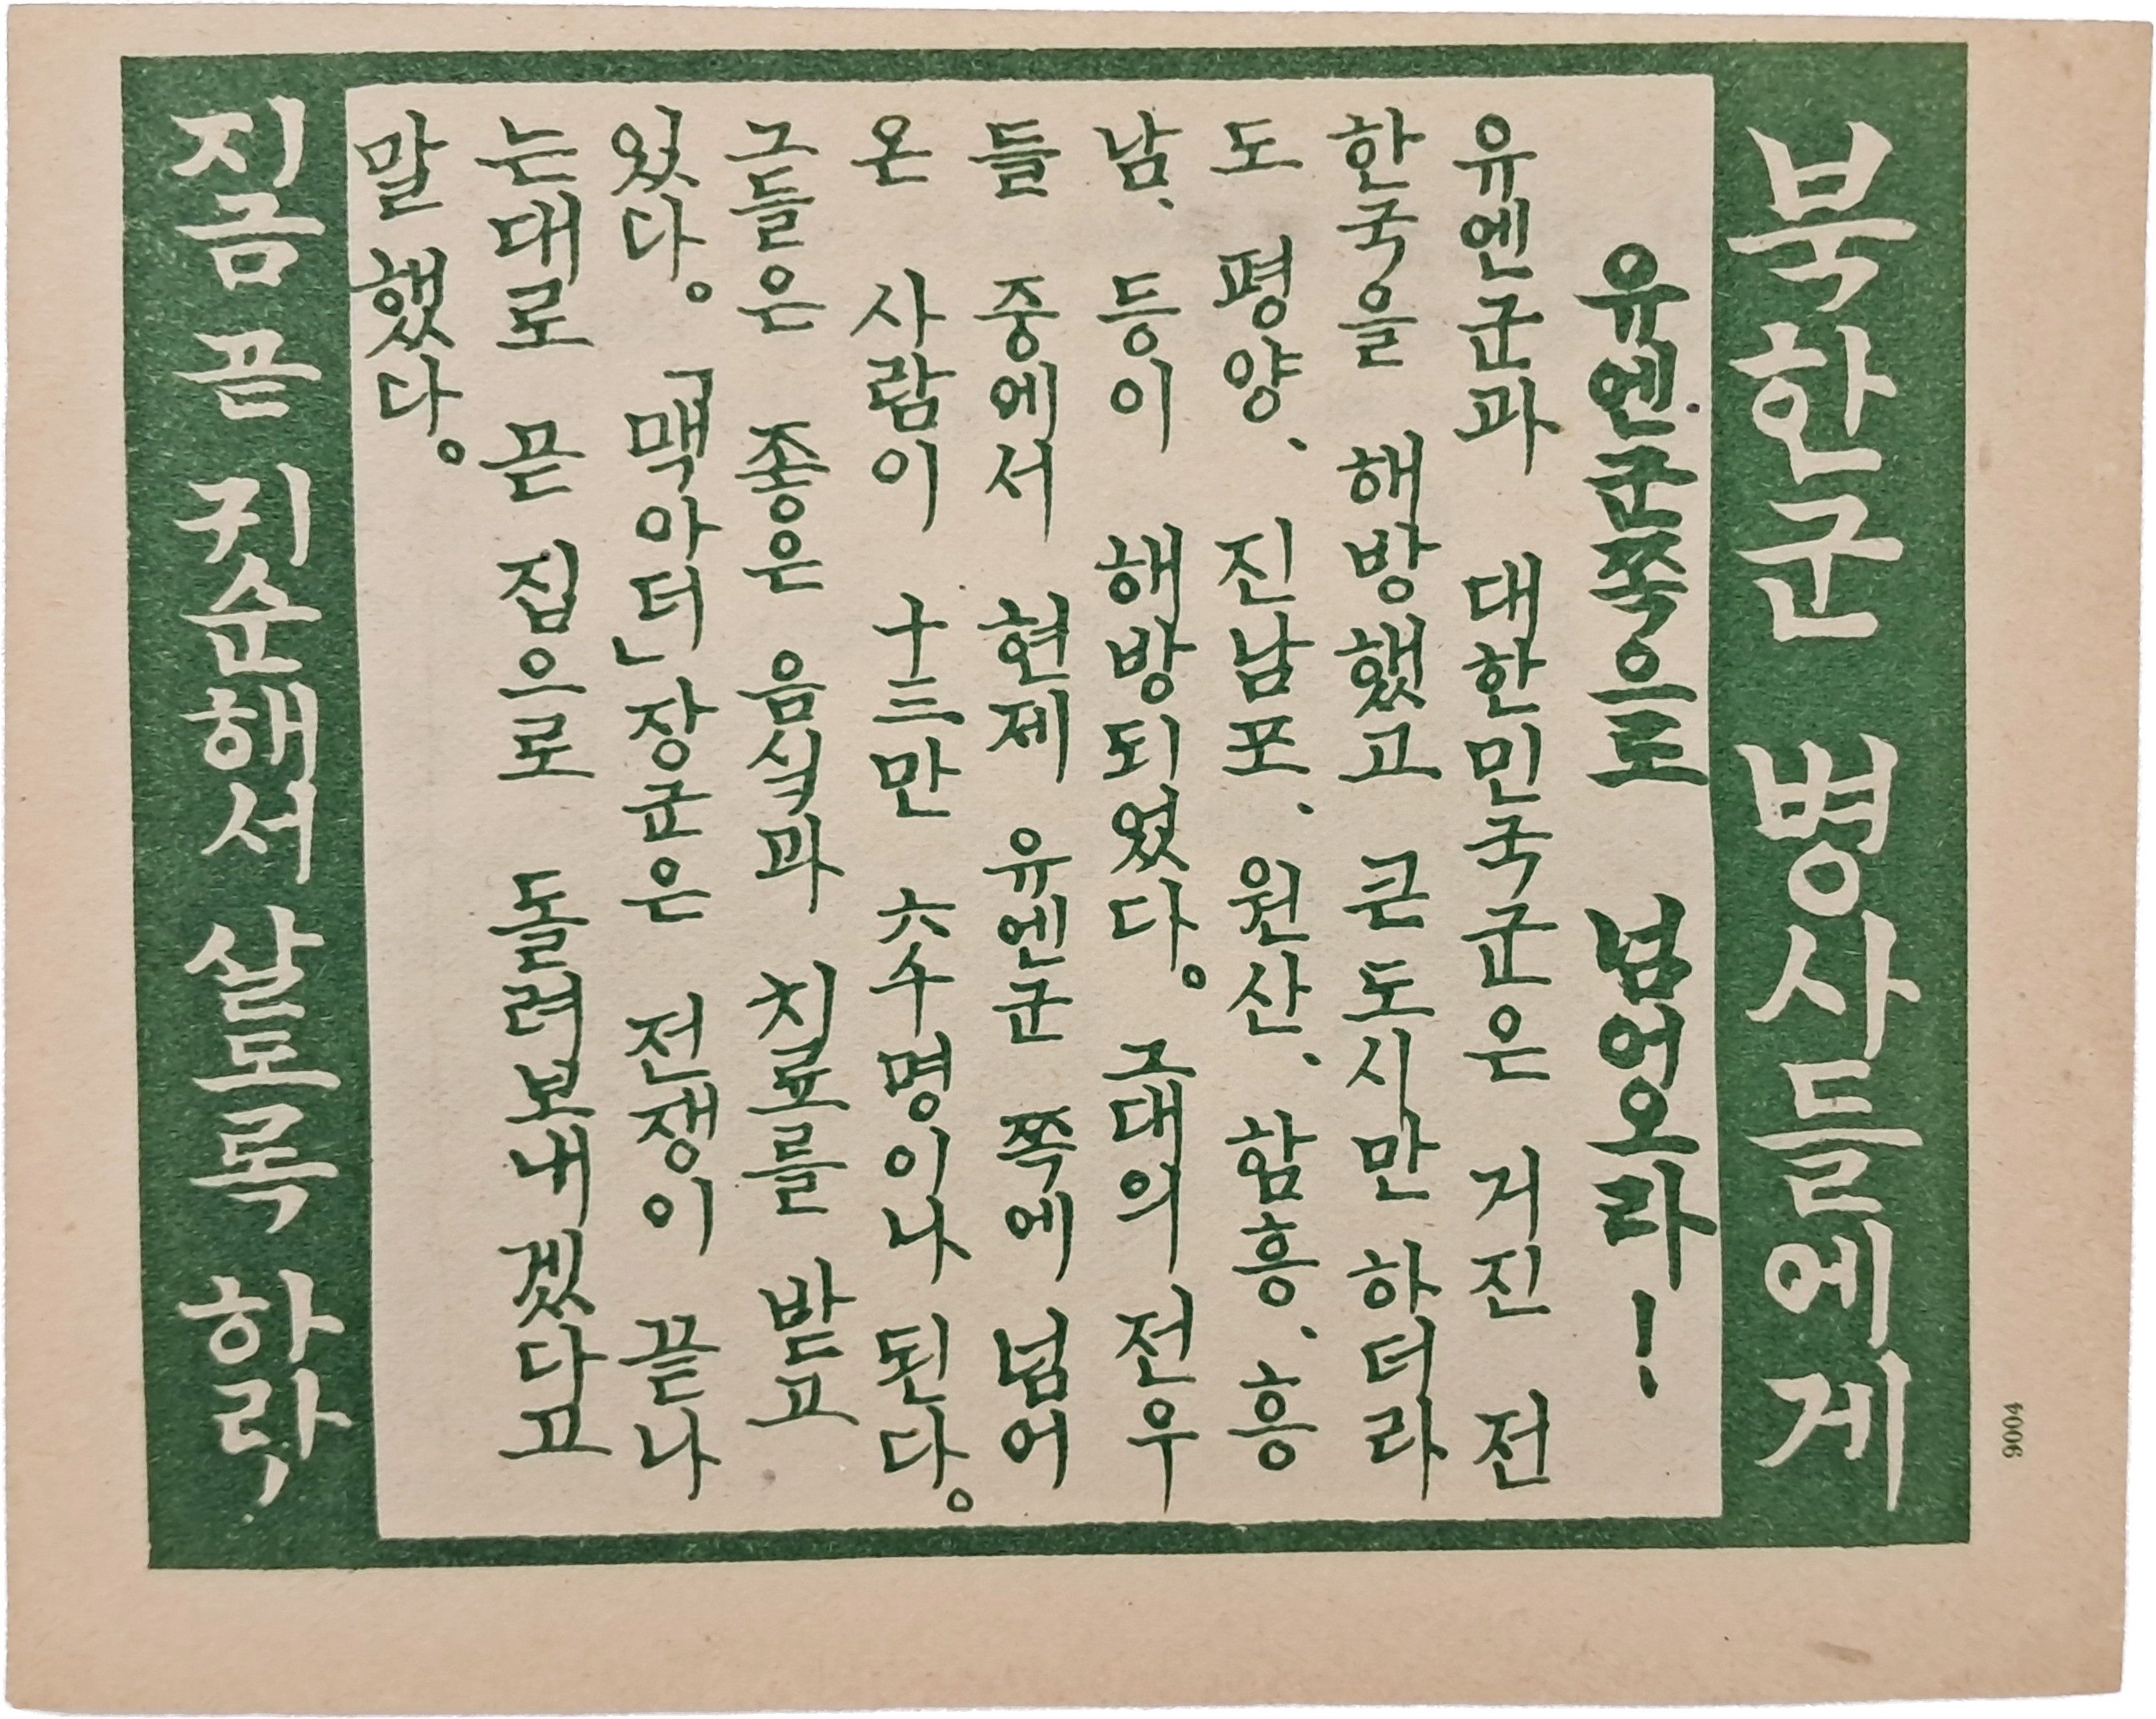 북한군 병사들에게
유엔군쪽으로 넘어오라!
유엔군과 대한민국군은 거진 전
한국을 해방했고 큰 도시만 하더라
도 평양、진남포、원산、함흥、흥
남、등이 해방되었다。그대의 전우
들 중에서 현제 유엔군 쪽에 넘어
온 사람이 十三만 六수명이나 된다。
그들은 좋은 음식과 치료를 받고
있다。「맥아더」장군은 전쟁이 끝나
는대로 곧 집으로 돌려보내겠다고
말했다。
지금 곧 귀순해서 살도록 하라
9004